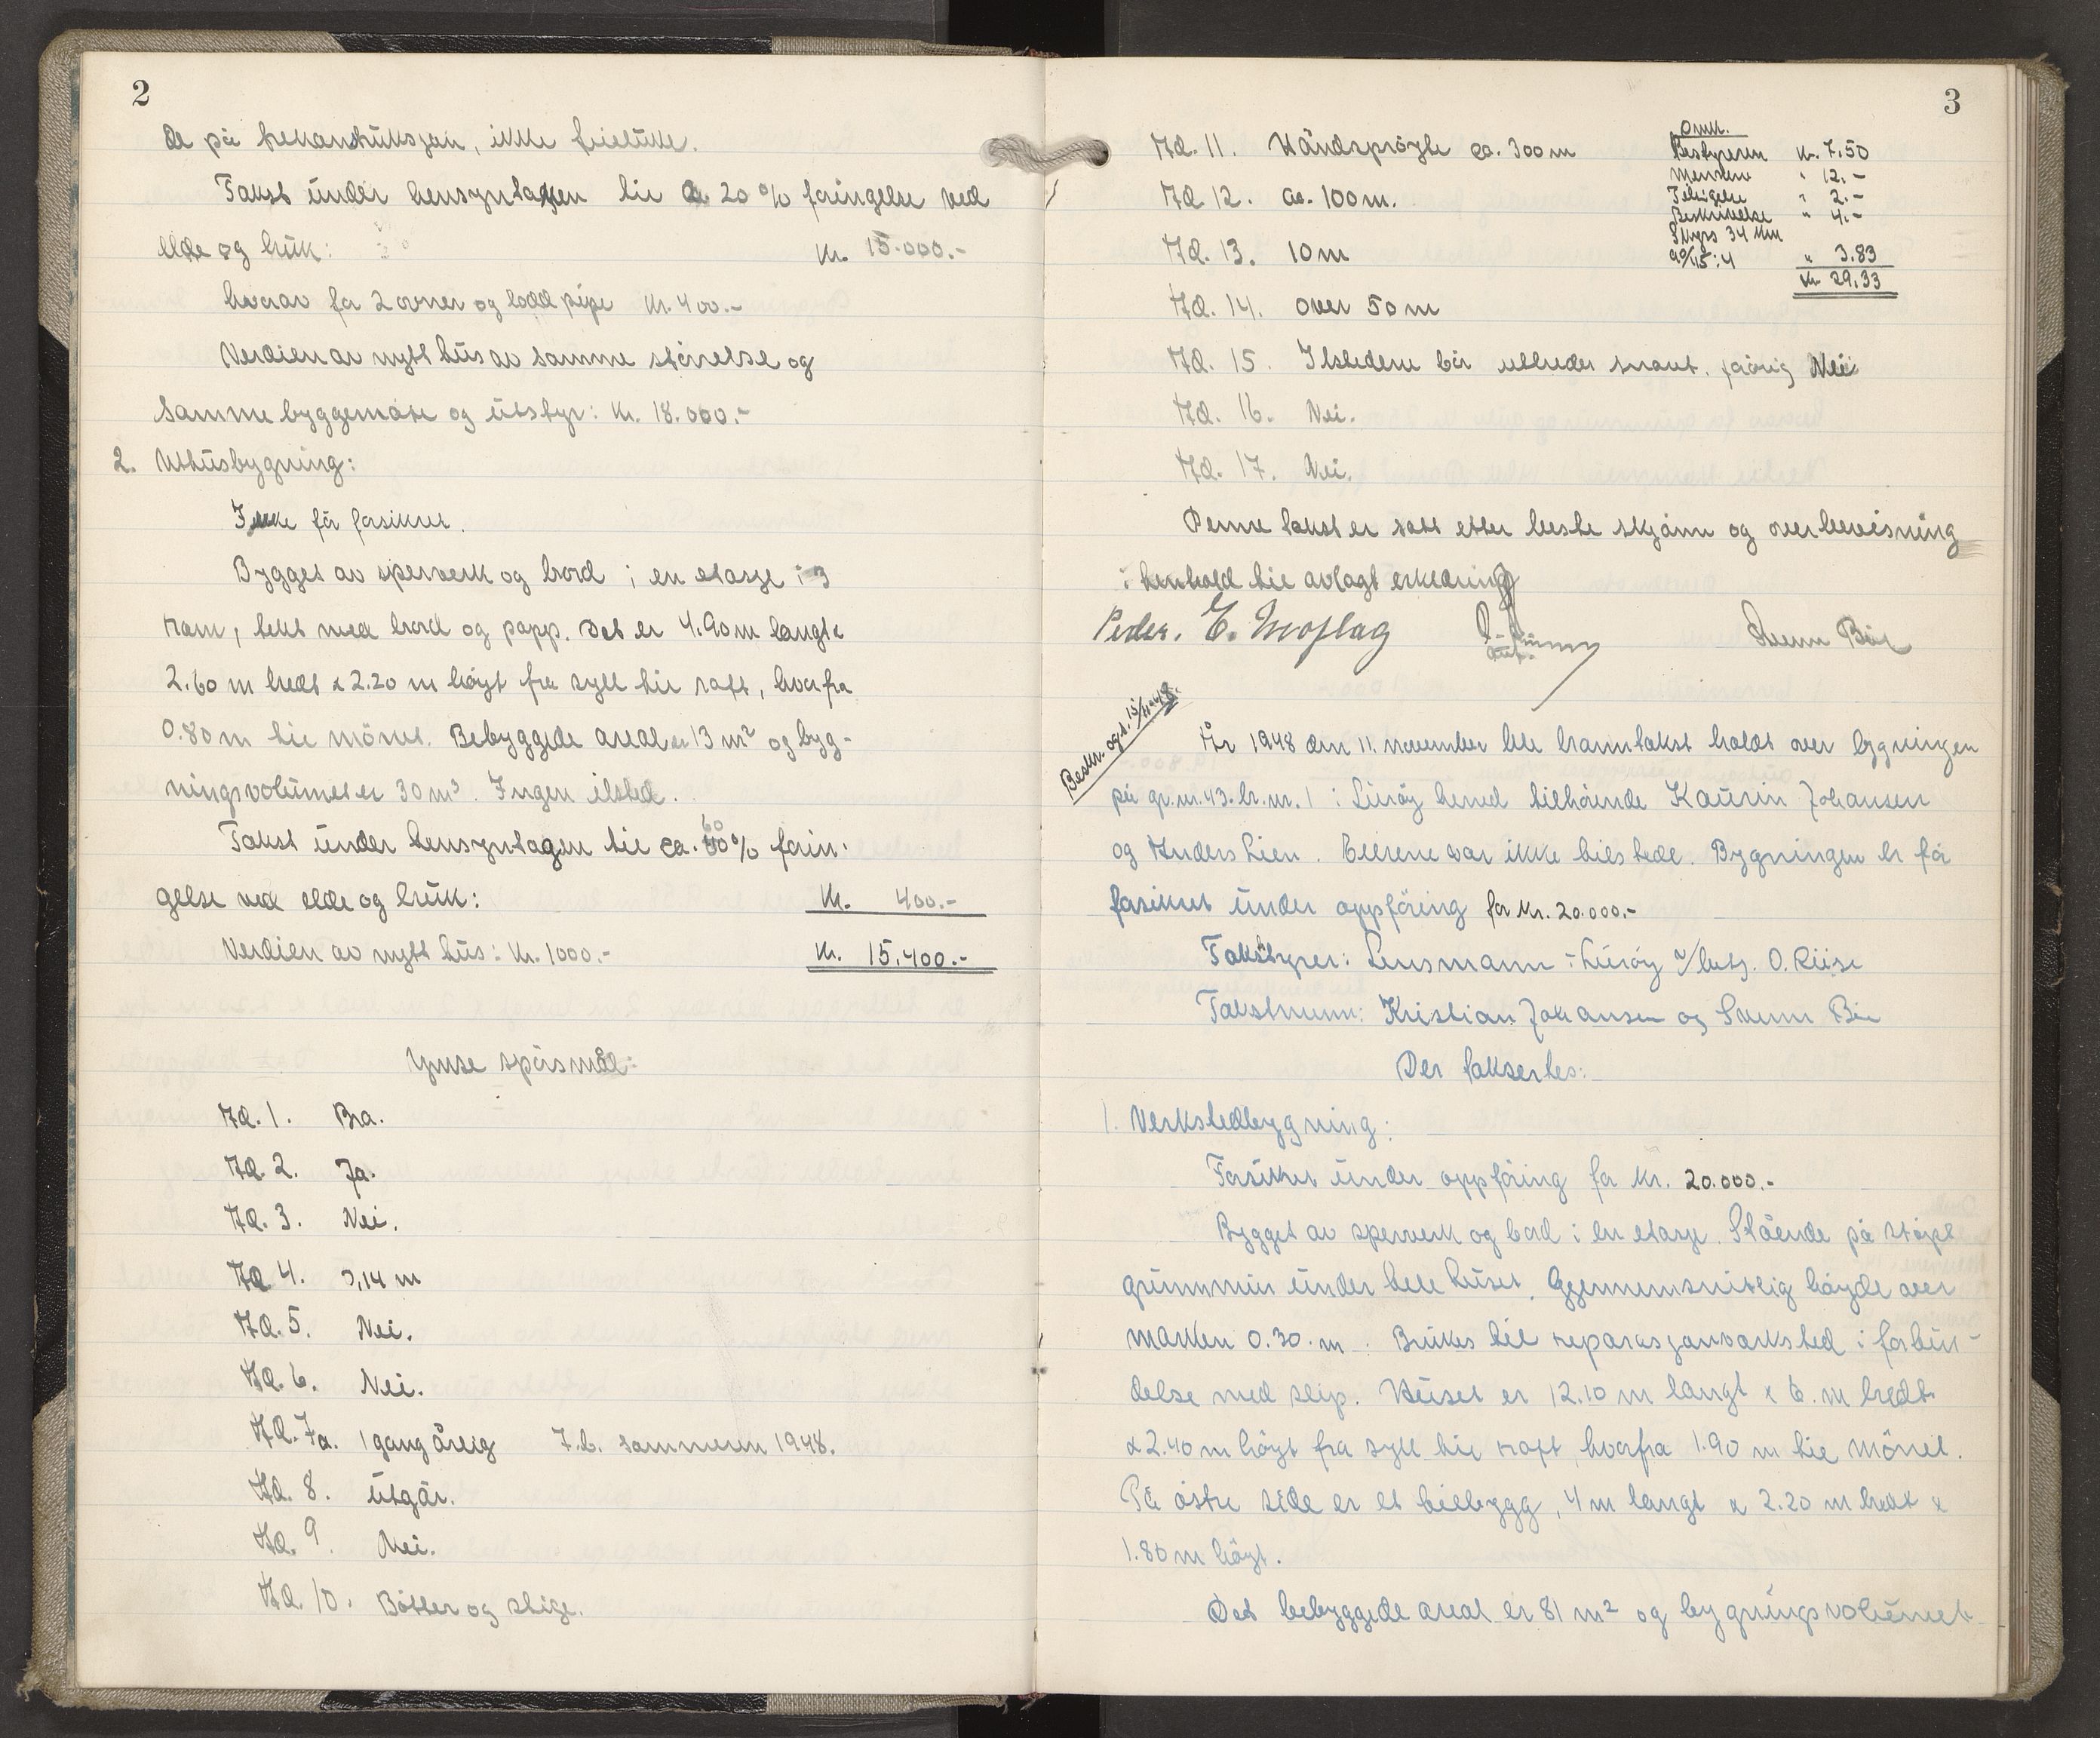 2
de på trekonstruksjon, ikke frielike.
Takst under hensyntagen til ca. 20 % foringelse ved
elde og bruk: Kr. 15.000.-
hvorav for 2 ovner og lodd pipe Kr. 400.-
Verdien av nytt hus av samme størrelse og
samme byggemåte og utstyr: Kr. 18.000.-
2. Uthusbygning:
Ikke før forsikret.
Bygget av sperverk og bord i en etasje i 3
rom, tekt med bord og papp. Det er 4.90 m langt x
2.60 m bredt x 2.20 m høyt fra syll til raft, hvorfra
0.80 m til mønet. Bebyggede areal er 13 m² og byg-
ningsvolumet er 30 m³. Ingen ilsted.
Takst under hensyntagen til ca. 60 % forin-
gelse ved elde og bruk: Kr. 400.-
Verdien av nytt hus: Kr. 1000.- Kr. 15.400.-
Ymse spørsmål:
Ad. 1. Bra.
Ad. 2. Ja.
Ad. 3. Nei.
Ad. 4. 0,14 m
Ad. 5. Nei.
Ad. 6. Nei.
Ad. 7a. 1 gang årlig 7.b. sommeren 1948.
Ad. 8. Utgår.
Ad. 9. Nei.
Ad. 10. Bøtter og stige.
3
Omk.
Bestyreren Kr. 7.50
Mennene " 12.-
Teligelse " 2.-
Beskrivelse " 4.-
Skyss 34 km
90/15:4 " 3.83
Kr. 29,33
Ad. 11. Håndsprøyte ca. 300 m
Ad. 12. ca. 100 m.
Ad. 13. 10 m
Ad. 14. over 50 m
Ad. 15. Ilstedene bør utbedes snart, forøvrig Nei
Ad. 16. Nei.
Ad. 17. Nei.
Denne takst er satt etter beste skjønn og overbevisning
i henhold til avlagt erklæring
Peder. E. Moflag Svenn Bie
Beskr. ogs. 15/11-48.
År 1948 den 11. november ble branntakst holdt over bygningen
på gr.nr. 43. br.nr. 1 i Lurøy herred tilhørende Kaurin Johansen
og Anders Lien. Eierene var ikke tilstede. Bygningen er før
forsikret under oppføring for Kr. 20.000.-
Takstyrer: Lensmann i Lurøy v/bets. O. Riise
Takstmenn: Kristian Johansen og Svenn Bie
Der taksertes:
1. Verkstedbygning:
Forsikret under oppføring for Kr. 20.000.-
Bygget av sperverk og bord i en etasje. Stående på støpt
grunnmur under hele huset. Gjennemsnitlig høyde over
marken 0.30 m. Brukes til reparasjonsverksted i forbin-
delse med slip. Huset er 12.10 m langt x 6. m bredt
x 2.40 m høyt fra syll til raft, hvorfra 1.90 m til mønet.
På østre side er et tilbygg, 4 m langt x 2.20 m bredt x
1.80 m høyt.
Det bebyggede areal er 81 m² og bygningsvolumet